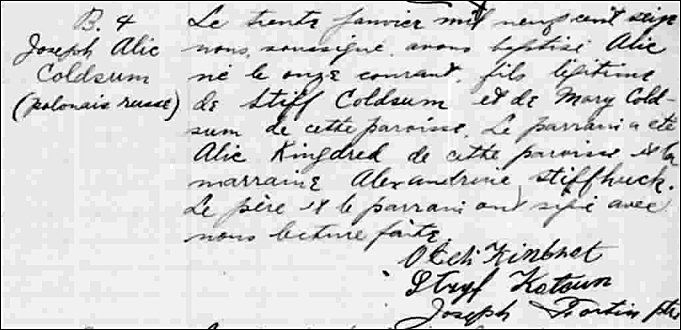 B. 4
Joseph Alic
Coldsum
(polonais russe)
Le trente janvier mil neuf cent seize
nous, soussigné, avons baptisé Alic
né le onze courant, fils légitime
de Stiff Coldsum et de Mary Cold-
sum de cette paroisse. Le parrain a été
Alic Kingdred de cette paroisse et la
marraine Alexandrine Stiffhuck.
Le père et le parrain ont signé avec
nous lecture faite.
Kinbhat
Stryf Kotsun
Joseph Fortin ptre